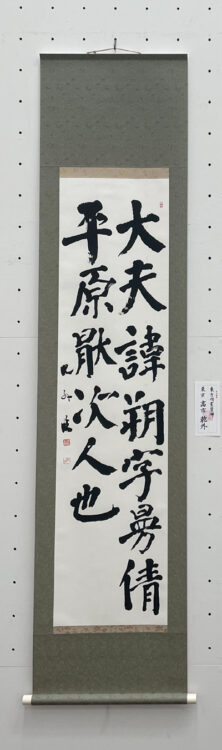 大夫諱朔字曼倩
平原厭次人也
東京 高市乾外